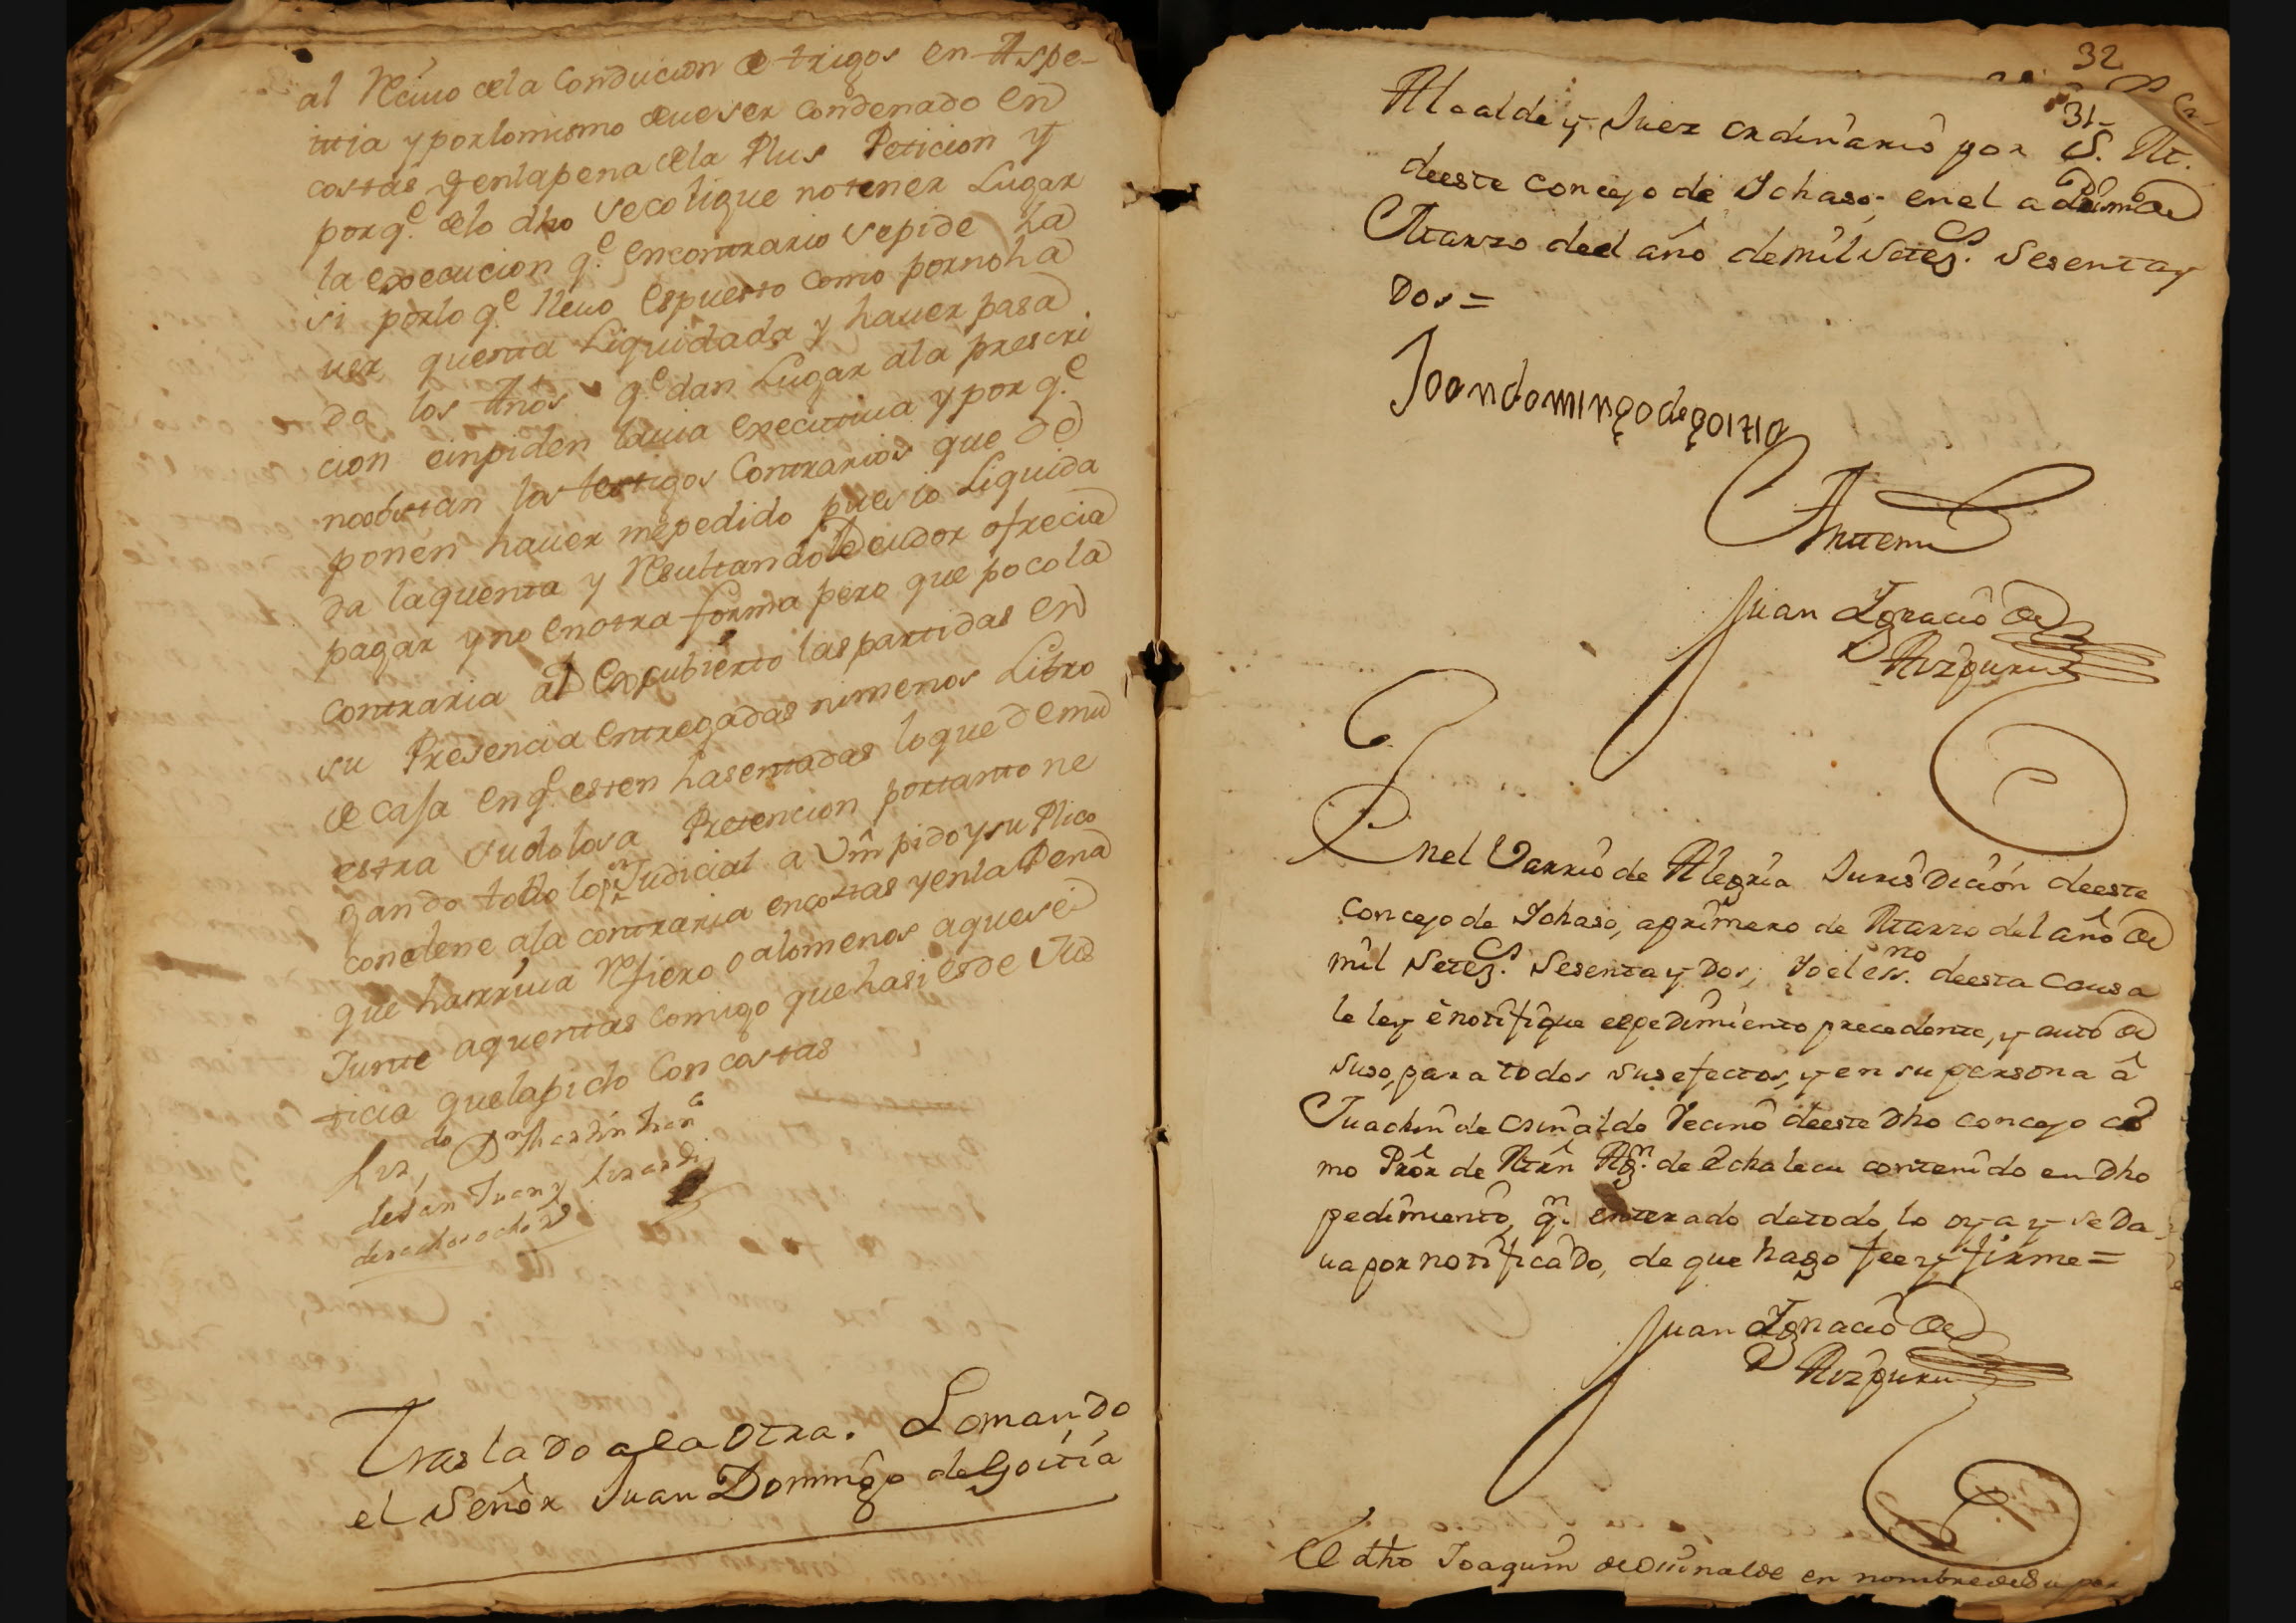 al Reciuo dela Conducion de trigos en Aspe-
itia y porlomismo deueser Condenado en
costas y enlapena dela Plus Peticion y
porq.e delo dho secolique notener Lugar
la execucion q.e encontrario sepide ha
si porlo q.e lleuo espuesto como pornoha
uer quenta Liquidada y hauer pasa
do los Años q.e dan Lugar ala prescri
cion einpiden lauia executiua y por q.e
noobstan los testigos Contrarios que de
ponen hauer mepedido pues io Liquida
da laquenta y Resultando Deudor ofrecia
pagar yno enotra forma pero que pocola
contraria al Descubierto laspartidas en
su Presencia entregadas nimenos Libro
de casa enq.e esten hasentadas loque demu
estra sudolosa Pretencion portanto ne
gando todo lo Judicial a Vm pido y su Plico
condene ala contraria encostas y enla Pena
que harriua Refiero o alomenos aquese
Junte aquentas comigo que hasi esde Jus
ticia quelapido Con costas
Liz.do Dn Martin Fran.co
de San Juan y
derechos ocho Rs
Traslado a la Otra. Lomando
el Señor Juan Domingo de Goitia
32
31-
Alcalde y Juez ordinario por S. M.
deeste concejo de Ichaso, enel a Primo de
Marzo deel año demil Setez.s Sesentay
Dos=
Joandomingodegoitia
Antemi
Juan Ignacio de
Aizpuru
Enel Varrio de Alegria Jurisdición deeste
Concejo de Ichaso, a primero de Marzo del año de
mil Setez.s Sesenta y Dos, Yo el ess.no deesta Causa
le ley è notifique elpedimiento precedente, y auto de
suso, para todos sus efectos, y en su persona â
Juachin de Osinalde Vecino deeste Dho concejo co
mo Pror de Mrn Ag.n de Echalecu contenido en Dho
pedimiento, q.n enterado detodo, lo oya y se Da
ua por notificado, de que hago fee y firme=
Juan Ignacio de
Aizpuru
El dho Joaquin de Osinalde en nombre de su par